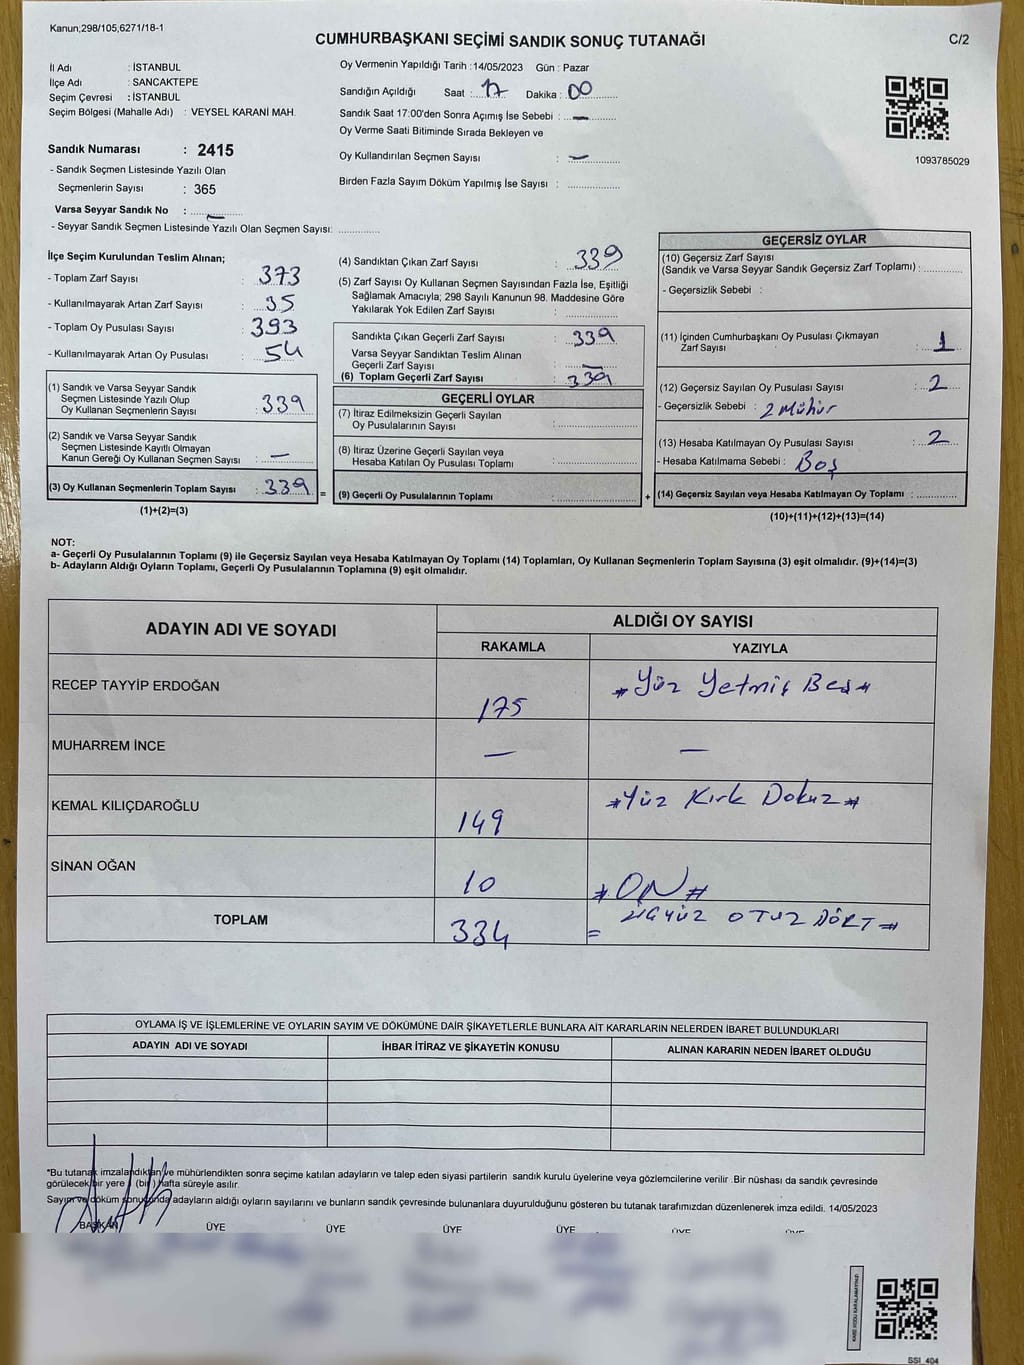 Kanun;298/105,6271/18-1
CUMHURBAŞKANI SEÇİMİ SANDIK SONUÇ TUTANAĞI
C/2
İl Adı : İSTANBUL
İlçe Adı : SANCAKTEPE
Seçim Çevresi : İSTANBUL
Seçim Bölgesi (Mahalle Adı) : VEYSEL KARANİ MAH.
Sandık Numarası : 2415
- Sandık Seçmen Listesinde Yazılı Olan
Seçmenlerin Sayısı : 365
Varsa Seyyar Sandık No : —
- Seyyar Sandık Seçmen Listesinde Yazılı Olan Seçmen Sayısı: ..............
Oy Vermenin Yapıldığı Tarih :14/05/2023 Gün : Pazar
Sandığın Açıldığı Saat : 17 Dakika : 00
Sandık Saat 17:00'den Sonra Açımış İse Sebebi : —
Oy Verme Saati Bitiminde Sırada Bekleyen ve
Oy Kullandırılan Seçmen Sayısı : —
Birden Fazla Sayım Döküm Yapılmış İse Sayısı : ..................
1093785029
İlçe Seçim Kurulundan Teslim Alınan;
- Toplam Zarf Sayısı : 373
- Kullanılmayarak Artan Zarf Sayısı : 35
- Toplam Oy Pusulası Sayısı : 393
- Kullanılmayarak Artan Oy Pusulası : 54
(1) Sandık ve Varsa Seyyar Sandık
Seçmen Listesinde Yazılı Olup
Oy Kullanan Seçmenlerin Sayısı : 339
(2) Sandık ve Varsa Seyyar Sandık
Seçmen Listesinde Kayıtlı Olmayan
Kanun Gereği Oy Kullanan Seçmen Sayısı : —
(3) Oy Kullanan Seçmenlerin Toplam Sayısı : 339 =
(1)+(2)=(3)
(4) Sandıktan Çıkan Zarf Sayısı : 339
(5) Zarf Sayısı Oy Kullanan Seçmen Sayısından Fazla İse, Eşitliği
Sağlamak Amacıyla; 298 Sayılı Kanunun 98. Maddesine Göre
Yakılarak Yok Edilen Zarf Sayısı : ..................
Sandıkta Çıkan Geçerli Zarf Sayısı : 339
Varsa Seyyar Sandıktan Teslim Alınan
Geçerli Zarf Sayısı : —
(6) Toplam Geçerli Zarf Sayısı : 339
GEÇERLİ OYLAR
(7) İtiraz Edilmeksizin Geçerli Sayılan
Oy Pusulalarının Sayısı : ..................
(8) İtiraz Üzerine Geçerli Sayılan veya
Hesaba Katılan Oy Pusulası Toplamı : ..................
(9) Geçerli Oy Pusulalarının Toplamı : .................. +
GEÇERSİZ OYLAR
(10) Geçersiz Zarf Sayısı
(Sandık ve Varsa Seyyar Sandık Geçersiz Zarf Toplamı) : ............
- Geçersizlik Sebebi :
(11) İçinden Cumhurbaşkanı Oy Pusulası Çıkmayan
Zarf Sayısı : 1
(12) Geçersiz Sayılan Oy Pusulası Sayısı : 2
- Geçersizlik Sebebi : 2 Mühür
(13) Hesaba Katılmayan Oy Pusulası Sayısı : 2
- Hesaba Katılmama Sebebi : Boş
(14) Geçersiz Sayılan veya Hesaba Katılmayan Oy Toplamı : ............
(10)+(11)+(12)+(13)=(14)
NOT:
a- Geçerli Oy Pusulalarının Toplamı (9) ile Geçersiz Sayılan veya Hesaba Katılmayan Oy Toplamı (14) Toplamları, Oy Kullanan Seçmenlerin Toplam Sayısına (3) eşit olmalıdır. (9)+(14)=(3)
b- Adayların Aldığı Oyların Toplamı, Geçerli Oy Pusulalarının Toplamına (9) eşit olmalıdır.
ADAYIN ADI VE SOYADI
ALDIĞI OY SAYISI
RAKAMLA YAZIYLA
RECEP TAYYİP ERDOĞAN 175 #Yüz Yetmiş Beş#
MUHARREM İNCE — —
KEMAL KILIÇDAROĞLU 149 #Yüz Kırk Dokuz#
SİNAN OĞAN 10 #ON#
TOPLAM 334 = ÜÇYÜZ OTUZ DÖRT #
OYLAMA İŞ VE İŞLEMLERİNE VE OYLARIN SAYIM VE DÖKÜMÜNE DAİR ŞİKAYETLERLE BUNLARA AİT KARARLARIN NELERDEN İBARET BULUNDUKLARI
ADAYIN ADI VE SOYADI İHBAR İTİRAZ VE ŞİKAYETİN KONUSU ALINAN KARARIN NEDEN İBARET OLDUĞU
"Bu tutanak imzalandıktan ve mühürlendikten sonra seçime katılan adayların ve talep eden siyasi partilerin sandık kurulu üyelerine veya gözlemcilerine verilir .Bir nüshası da sandık çevresinde
görülecek bir yere (bir) hafta süreyle asılır.
Sayım ve döküm sonucunda adayların aldığı oyların sayılarını ve bunların sandık çevresinde bulunanlara duyurulduğunu gösteren bu tutanak tarafımızdan düzenlenerek imza edildi. 14/05/2023
BAŞKAN ÜYE ÜYE ÜYE ÜYE ÜYE ÜYE
KARE KODU KARALAMAYINIZ!
SSI_404